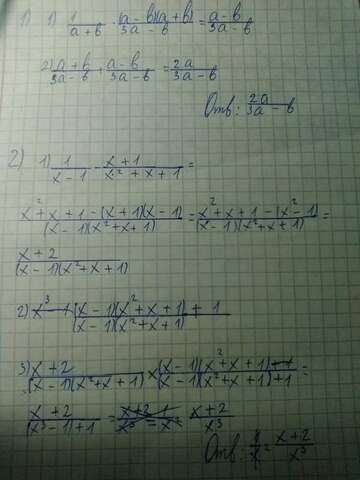 1) 1) 1/(a+в) · (a-в)(a+в)/(3a-в) = (a-в)/(3a-в)
2) (a+в)/(3a-в) + (a-в)/(3a-в) = 2a/(3a-в)
Отв: 2a/(3a-в)
2) 1) 1/(x-1) - (x+1)/(x²+x+1) =
(x²+x+1-(x+1)(x-1))/((x-1)(x²+x+1)) = (x²+x+1-(x²-1))/((x-1)(x²+x+1)) =
(x+2)/((x-1)(x²+x+1))
2) ((x-1)(x²+x+1)+1)/((x-1)(x²+x+1))
3) (x+2)/((x-1)(x²+x+1)) × ((x-1)(x²+x+1))/((x-1)(x²+x+1)+1) =
(x+2)/((x³-1)+1) = (x+2)/x³
Отв: (x+2)/x³